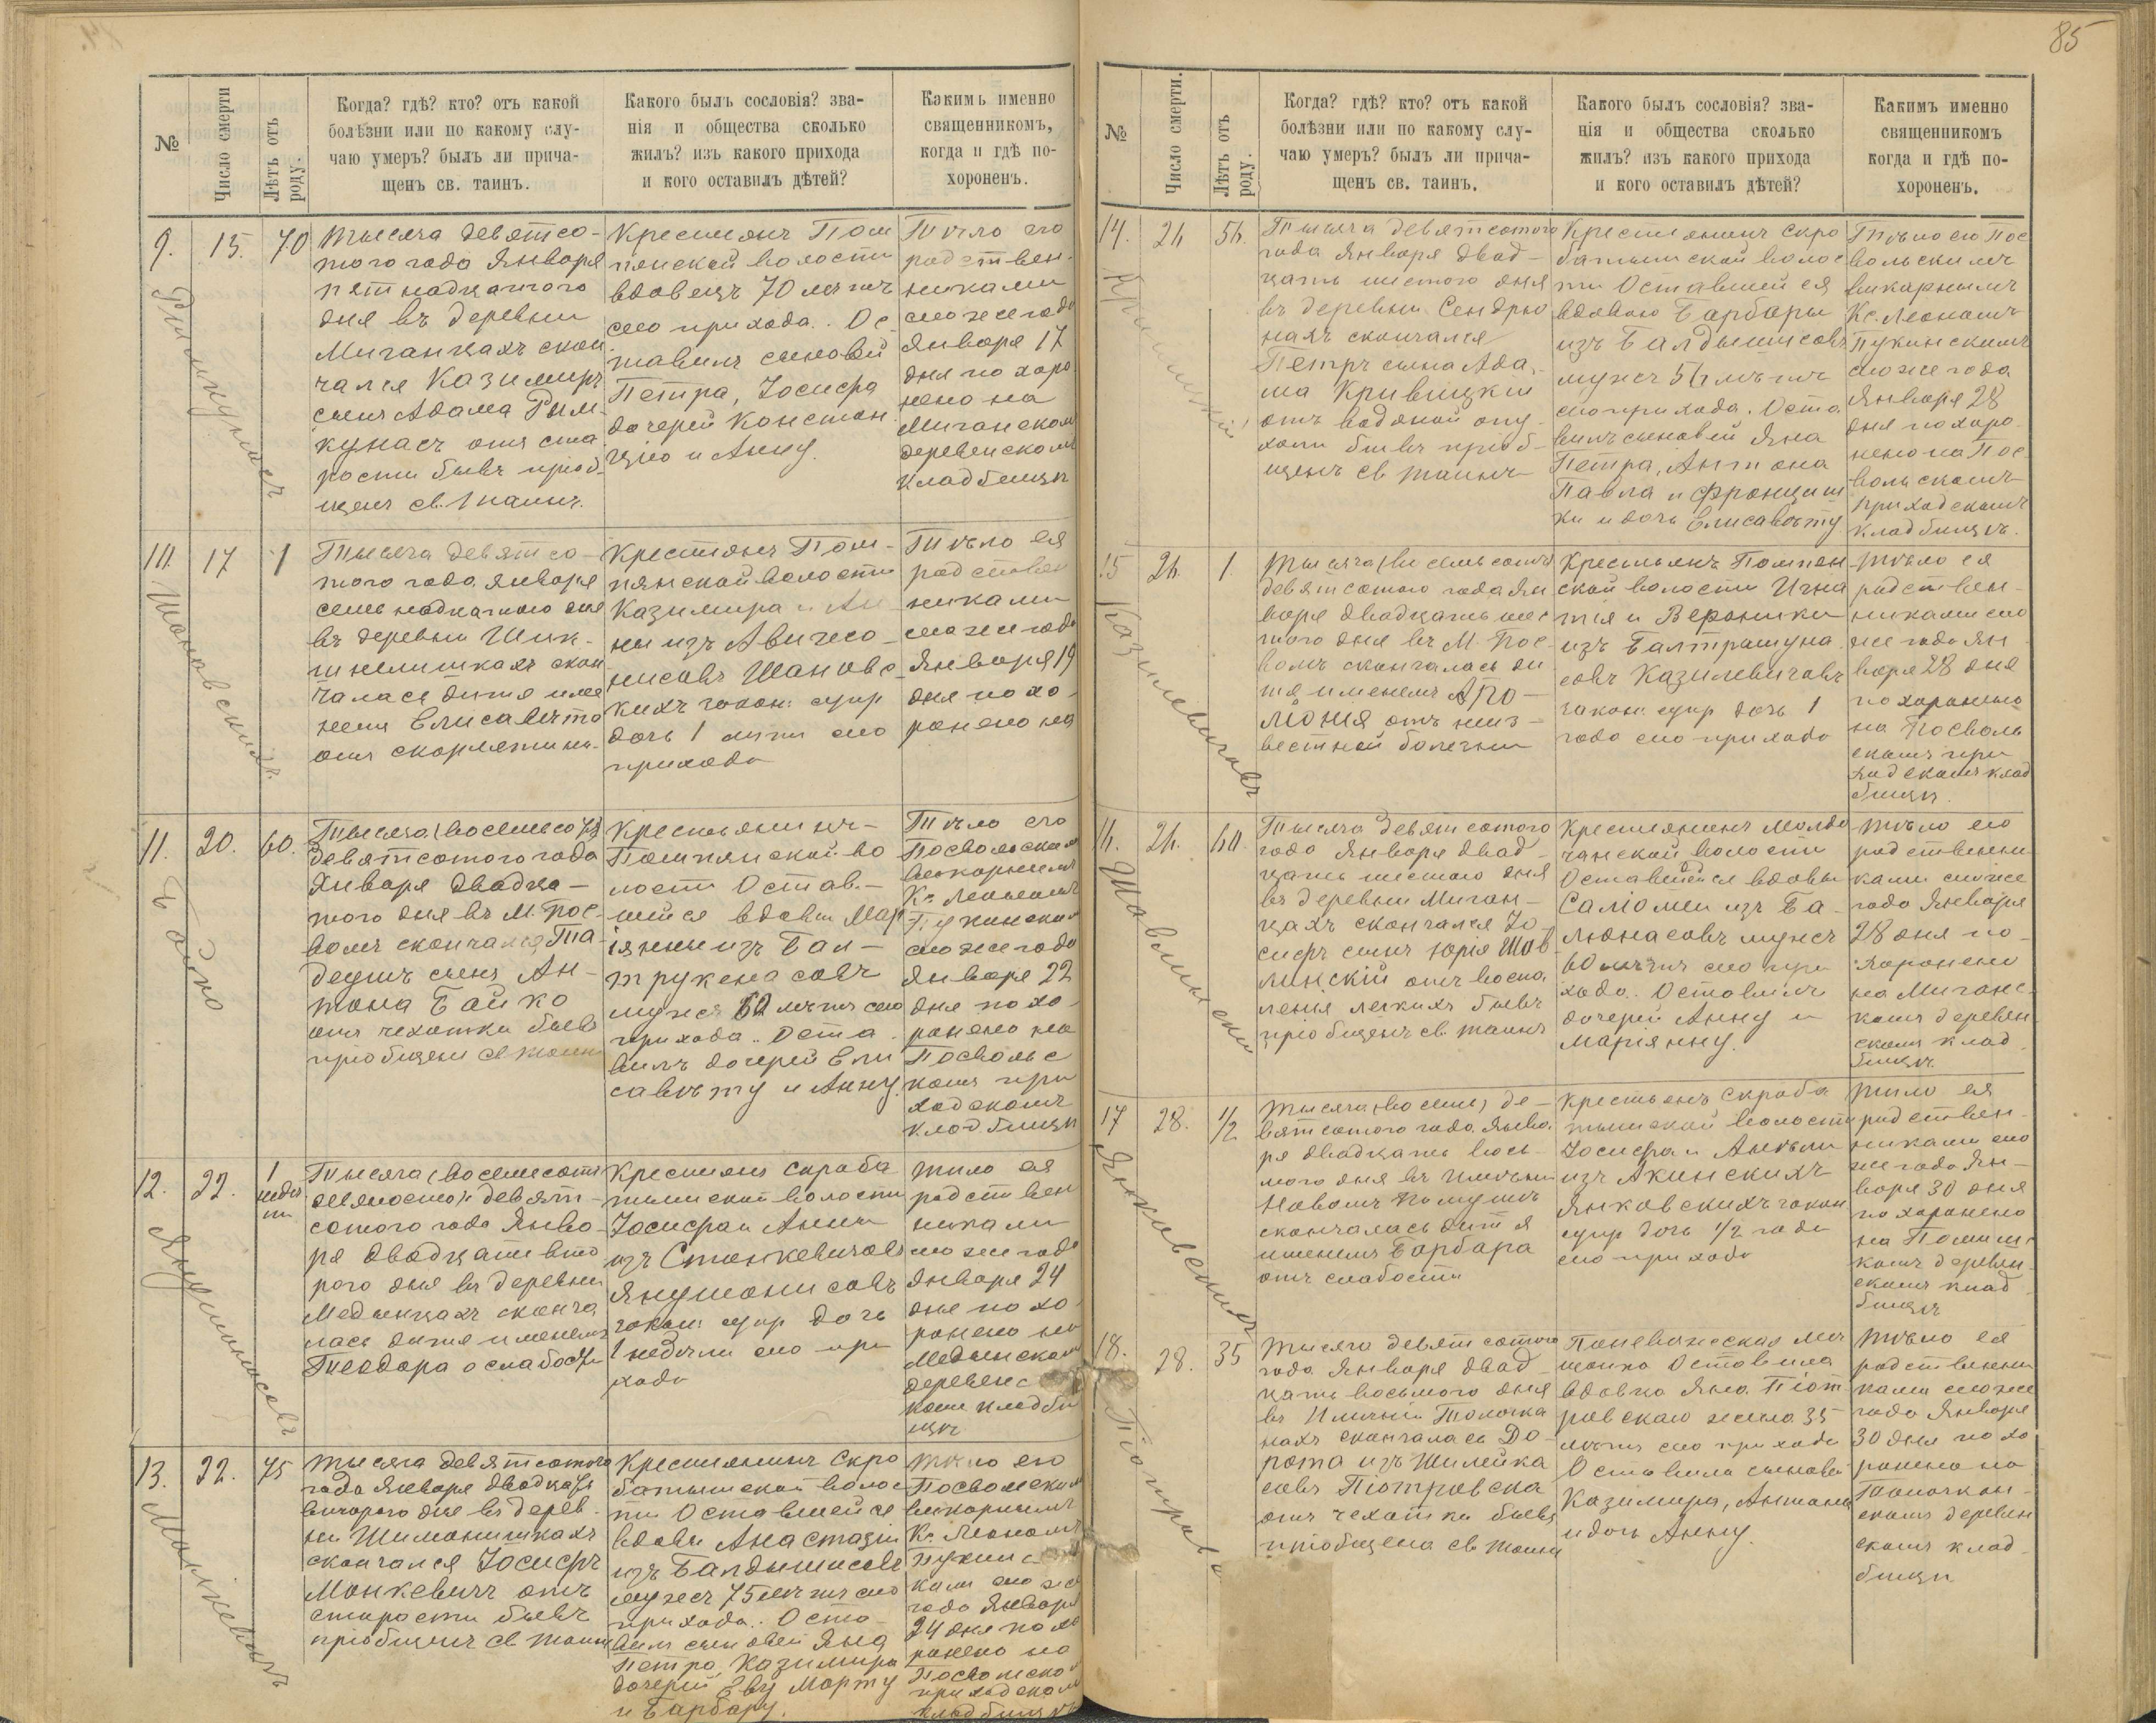 85
№
Число смерти
Лѣтъ отъ роду.
Когда? гдѣ? кто? отъ какой
болѣзни или по какому слу-
чаю умеръ? былъ ли прича-
щенъ св. таинъ.
Какого былъ сословія? зва-
нія и общества сколько
жилъ? изъ какого прихода
и кого оставилъ дѣтей?
Какимъ именно
священникомъ,
когда и гдѣ по-
хороненъ.
9.
15.
70
Римкунасъ
Тысяча девятсо-
таго года Января
пятнадцатого
дня въ деревни
Миганцахъ скон
чался Казимиръ
сынъ Адама Рим-
кунасъ отъ ста
рости бывъ приоб
щенъ св. Таинъ.
Крестянъ Пом
пянской волости
вдовецъ 70 летъ
сего прихода. Ос-
тавилъ сыновей
Петра, Іосифа
дочерей Констан
цію и Анну.
Тѣло его
родствен-
никами
сего же года
Января 17
дня похоро
нено на
Миганском
деревенскомъ
кладбищѣ
10.
17
1
Шановскихъ
Тысяча девятсо-
того года Января
семьнадцатого дня
въ деревни Шик-
шнелишкахъ скон
чалась дитя име
немъ Елисавѣта
отъ скорлятины.
Крестянъ Пом-
пянской волости
Казимира и Ан
ны изъ Авижо-
нисовъ Шановс-
кихъ закон. супр
дочь 1 лѣти сего
прихода
Тѣло ея
родствен
никами
сего же года
Января 19
дня похо-
ронено на
11.
20.
60.
Байко
Тысяча (восемьсотъ)
девятсотого года
Января двадца-
того дня въ М. Пос-
волѣ скончался Та-
деушъ сынъ Ан-
тона Байко
отъ чехотки бывъ
пріобщенъ св Таинъ
Крестьянинъ-
Помпянской во
лости Остав.-
шійся вдовы Мар
іянны изъ Бал-
трукенасовъ
мужъ 60 лѣтъ сего
прихода. Оста.
вилъ дочерей Ели
савѣту и Анну.
Тѣло его
Посвольскимъ
викарнымъ
Кс. Леономъ
Пукинскимъ
сего же года
Января 22
дня похо-
ронено на
Посвольс
комъ при
ходскомъ
кладбищѣ
12.
22.
1
недѣл
ли
Янушонисовъ
Тысяча (восемьсотъ
девяносто) девят-
сотого года Янво-
ря двадцати вто
рого дня въ деревни
Медынцахъ сконча
лась дитя именемъ
Теодора о слабости
Крестянъ скроба
тышской волости
Іосифа и Анны
изъ Станкевичовъ
Янушонисовъ
закон супр дочь
1 недѣли сего при
хода
Тило ея
родствен
никами
сего же года
Января 24
дня похо-
ронено на
Медынском
деревенс
комъ кладби
щѣ
13.
22.
75
Монкевичъ
Тысяча девятсотого
года Января двадцать
второго дня въ дерев-
ни Шимонишкахъ
скончался Іосифъ
Монкевичъ отъ
старости бывъ
пріобщенъ св Таинъ
Крестянинъ Скро
батышской волос
ти Оставшейся
вдовы Анастазіи
изъ Балдышисовъ
мужъ 75 лѣтъ сего
прихода. Оста-
вилъ сыновей Яна
Петра, Казимира
дочерей Еву Марту
и Барбару.
Тѣло его
Посвольским
викарнымъ
Кс. Леономъ
Пукинс
ким сего же
года Января
24 дня похо
ронено на
Посвольском
приходском
кладбищѣ
№
Число смерти.
Лѣтъ отъ роду.
Когда? гдѣ? кто? отъ какой
болѣзни или по какому слу-
чаю умеръ? былъ ли прича-
щенъ св. таинъ.
Какого былъ сословія? зва-
нія и общества сколько
жилъ? изъ какого прихода
и кого оставилъ дѣтей?
Какимъ именно
священникомъ
когда и гдѣ по-
хороненъ.
14.
26
56.
Кривицкій
Тысяча девятсотого
года Января двад-
цать шестого дня
въ деревни Сендрю
нахъ скончался
Петръ сына Ада-
ма Кривицкій
отъ водяной опу-
холи бывъ приоб-
щенъ св Таинъ
Крестянинъ скро
батышской волос
ти Оставшейся
вдовою Барбары
изъ Балдышисовъ
мужъ 56 лѣтъ
сего прихода. Оста
вилъ сыновей Яна
Петра, Антона
Павла и Францыш
ка и дочь Елисавѣту
Тѣло его Пос
вольскимъ
викарнымъ
Кс. Леономъ
Пукинскимъ
сего же года
Января 28
дня похоро-
нено на Пос
вольскомъ
приходскомъ
кладбищѣ.
15
26.
1.
Казилевичовъ
Тысяча (восемьсотъ)
девятсотого года Ян
воря двадцать шес
того дня въ М. Пос-
волѣ скончалась ди
тя именемъ Апо-
лонія отъ неиз-
вестной болезни
Крестьянъ Помпян
ской волости Игна
тія и Вероники
изъ Балтрашуна
совъ Казилевичовъ
закон. супр дочь 1
года сего прихода
Тѣло ея
родствен-
никами сего
же года Ян
воря 28 дня
похоронено
на Посволь
скомъ при
ходскомъ клад
бищѣ.
16.
26.
60.
Шавлинскій
Тысяча девятсотого
года Января двад-
цать шестого дня
въ деревни Миган-
цахъ скончался Іо-
сифъ сынъ Юрія Шав
линскій отъ воспа
ленія легкихъ бывъ
пріобщенъ св Таинъ
Крестянинъ Молдо
чанской волости
Оставшейся вдовы
Саломеи изъ Ба-
люнасовъ мужъ
60 лѣтъ сего при
хода. Оставилъ
дочерей Анну и
Маріянну.
Тѣло его
родственни
ками сегоже
года Января
28 дня по-
хоронено
на Миганс-
комъ деревен
скомъ клад
бищѣ.
17
28.
1/2
Янковскихъ
Тысяча (восемь) де-
вятсотого года Янво.
ря двадцать вось-
мого дня въ Имѣньи
Новомъ Помушѣ
скончалась дитя
именемъ Барбара
отъ слабости
Крестьянъ Скроба
тышской волости
Іосифа и Анѣли
изъ Акинскихъ
Янковскихъ закон
супр дочь 1/2 года
сего прихода
Тило ея
родствен-
никами сего
же года Ян-
воря 30 дня
похоронено
на Помуш-
комъ деревен-
скомъ клад
бищѣ
18.
28.
35
Піотровска
Тысяча девятсотого
года Января двад-
цать восьмого дня
въ Имѣніи Толочка
нахъ скончалась До-
рота изъ Шилейка
совъ Піотровска
отъ чехотки бывъ
пріобщена св Таинъ
Поневежская ме
щанка Оставила
вдовца Яна Піот
ровскаго жила 35
лѣтъ сего прихода
Оставила сыновей
Казимира, Антона
и дочь Анну.
Тѣло ея
родственни
ками сегоже
года Января
30 дня похо
ронено на
Толочкан-
скомъ деревен
скомъ клад-
бищѣ